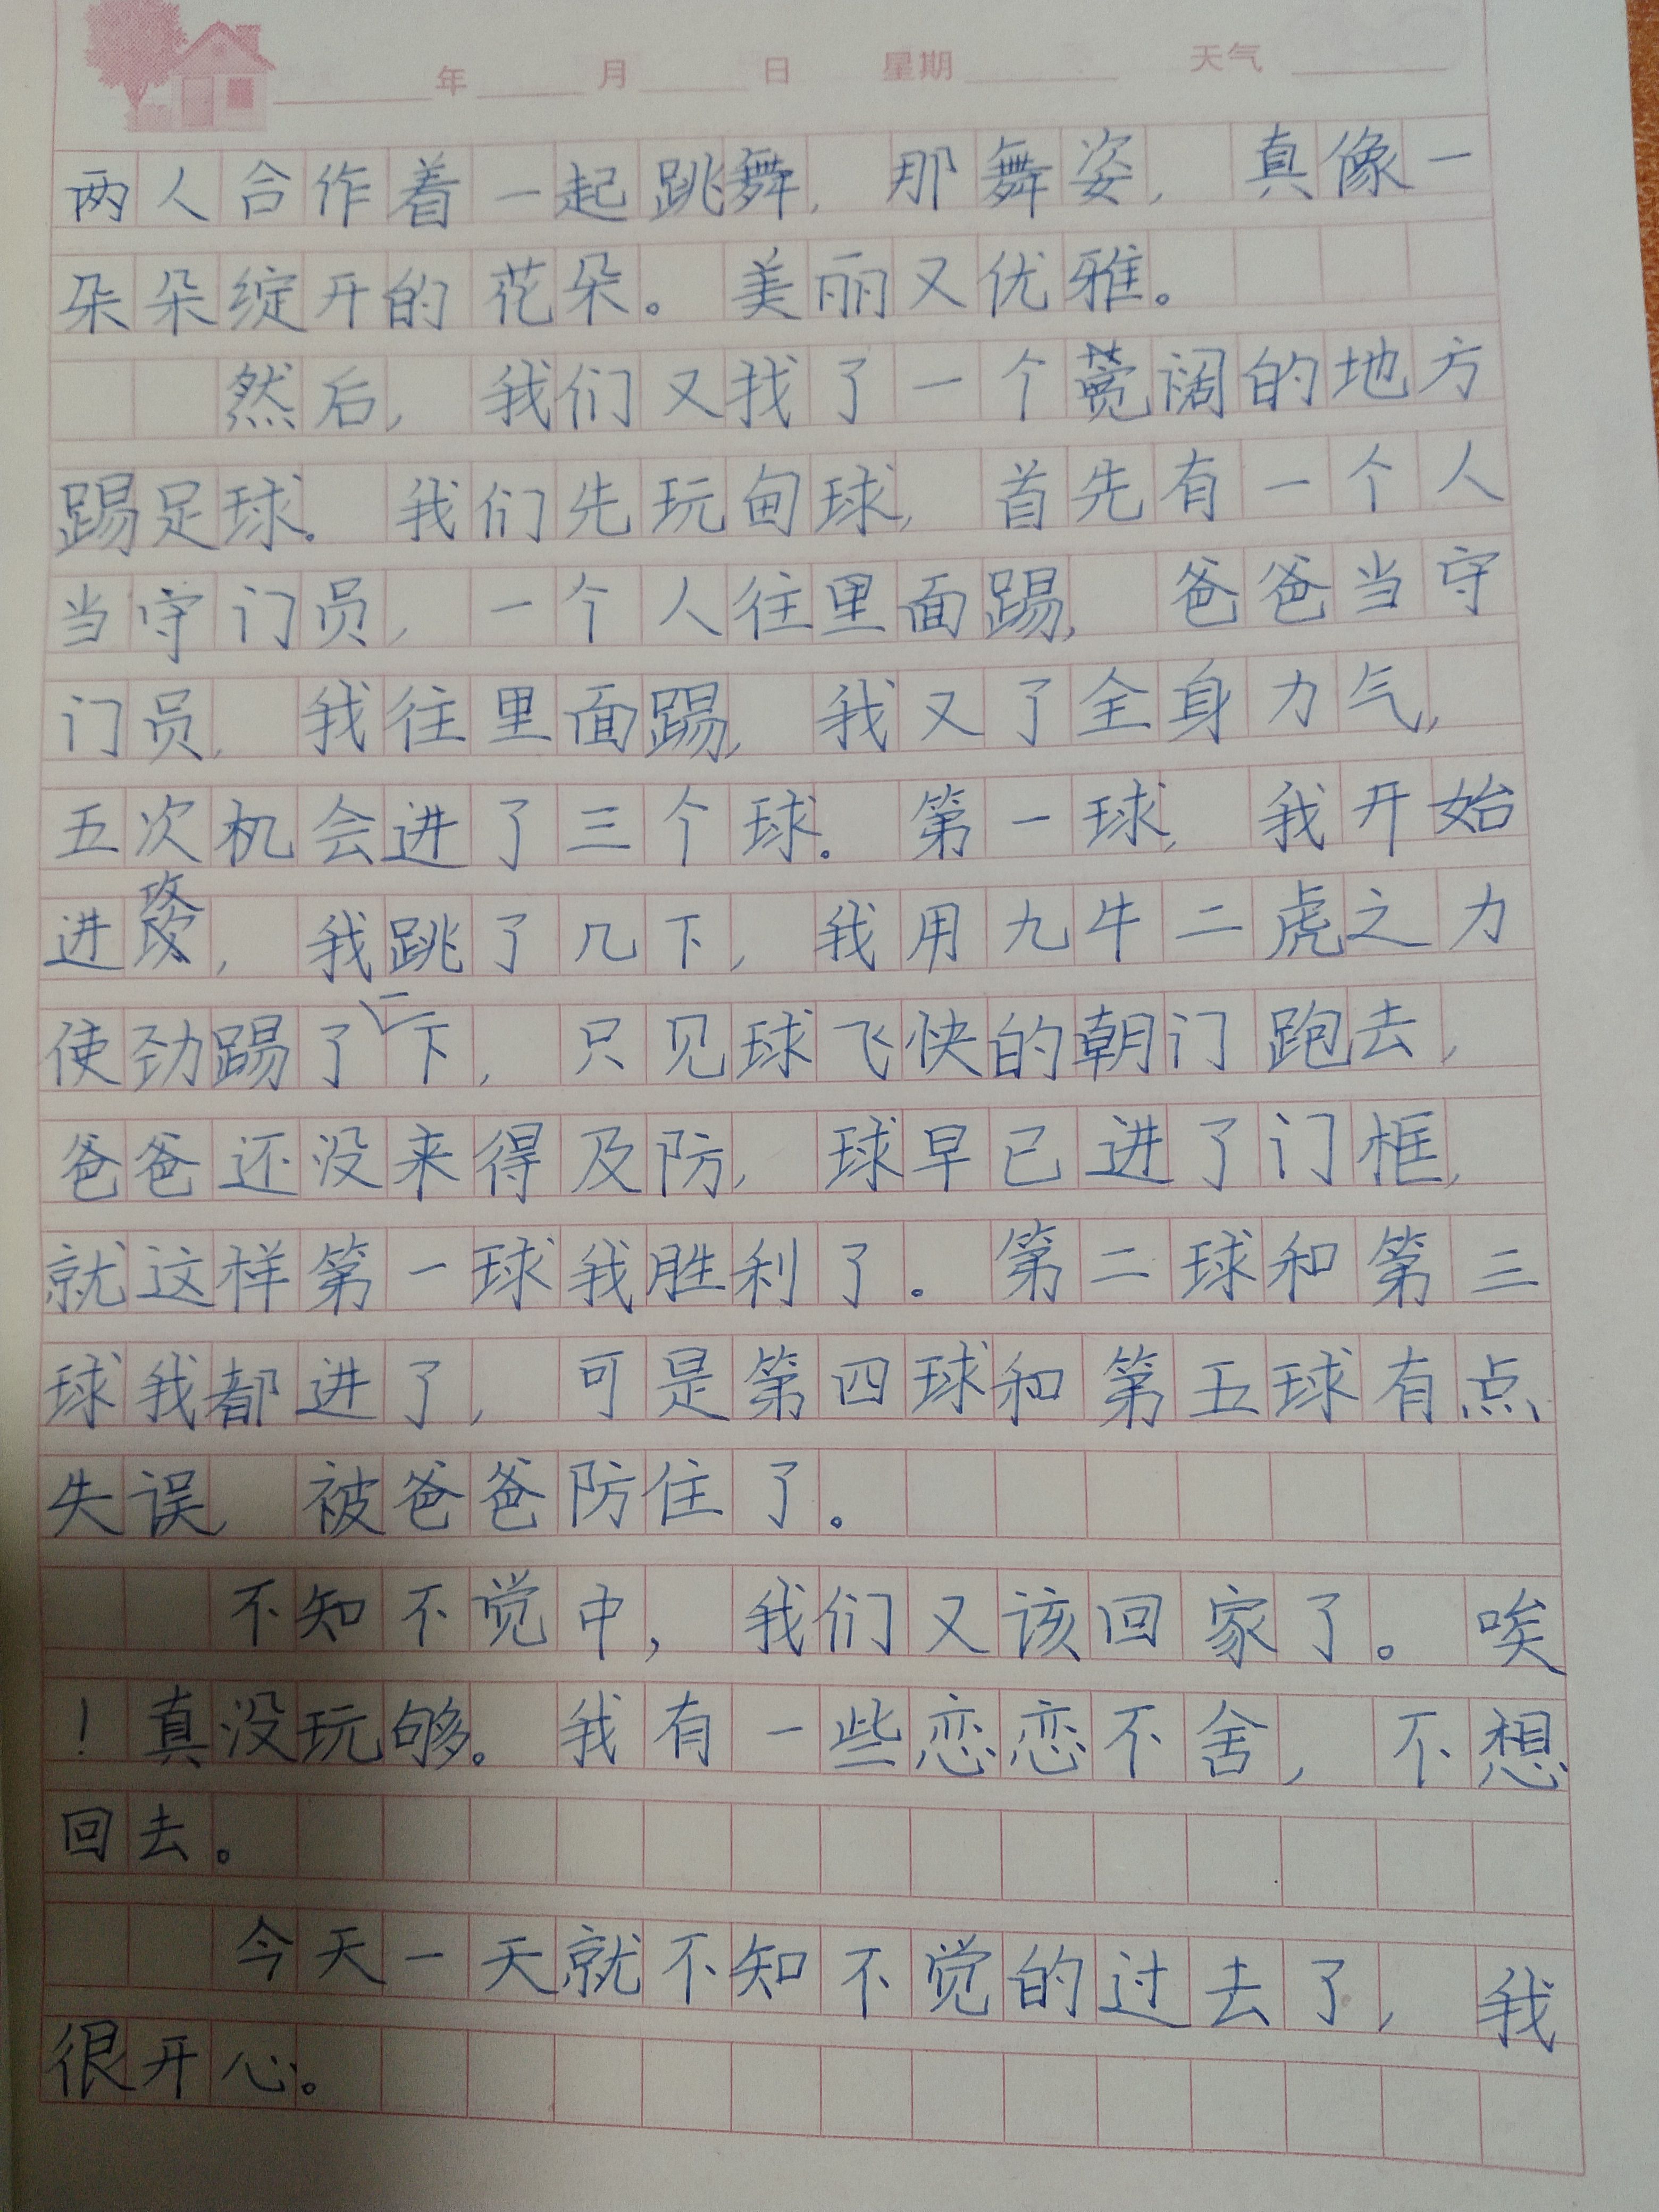 年 月 日 星期 天气
两人合作着一起跳舞，那舞姿，真像一
朵朵绽开的花朵。美丽又优雅。
然后，我们又找了一个宽阔的地方
踢足球。我们先玩甸球，首先有一个人
当守门员，一个人往里面踢，爸爸当守
门员，我往里面踢，我又了全身力气，
五次机会进了三个球。第一球，我开始
进攻，我跳了几下，我用九牛二虎之力
使劲踢了一下，只见球飞快的朝门跑去，
爸爸还没来得及防，球早已进了门框，
就这样第一球我胜利了。第二球和第三
球我都进了，可是第四球和第五球有点
失误，被爸爸防住了。
不知不觉中，我们又该回家了。唉
！真没玩够。我有一些恋恋不舍，不想
回去。
今天一天就不知不觉的过去了，我
很开心。